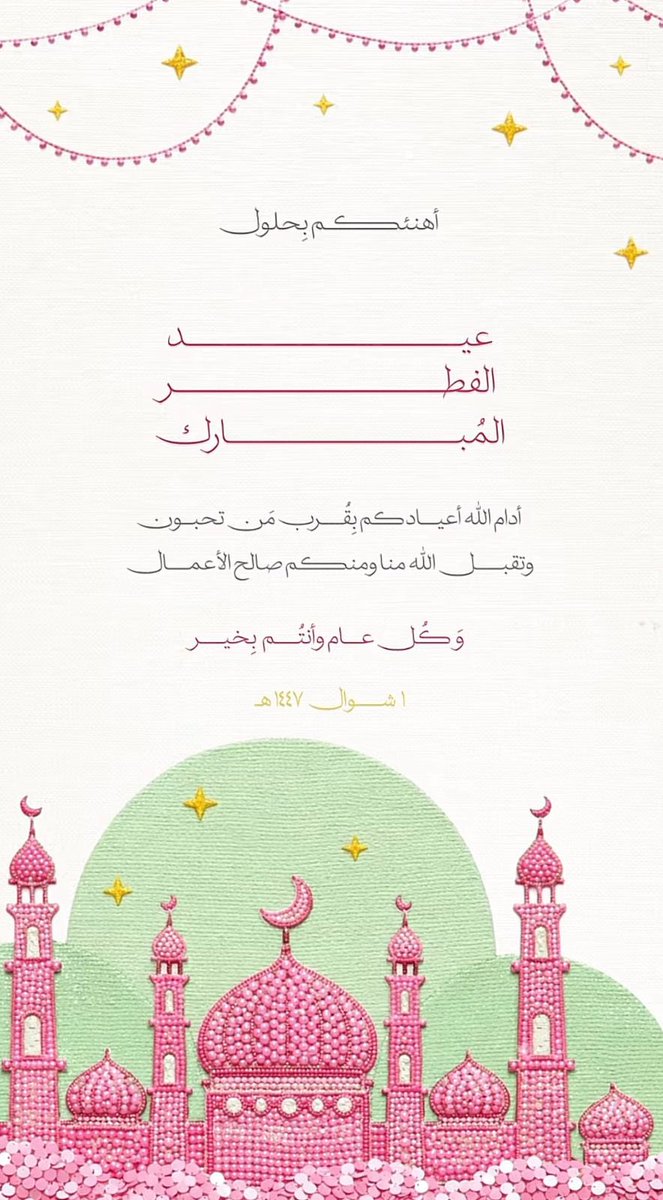 أهنئكم بِحلول
عيد
الفطر
المُبارك
أدام الله أعيادكم بِقُرب مَن تحبون
وتقبل الله منا ومنكم صالح الأعمال
وَكُل عام وأنتُم بِخير
١ شوال ١٤٤٧هـ